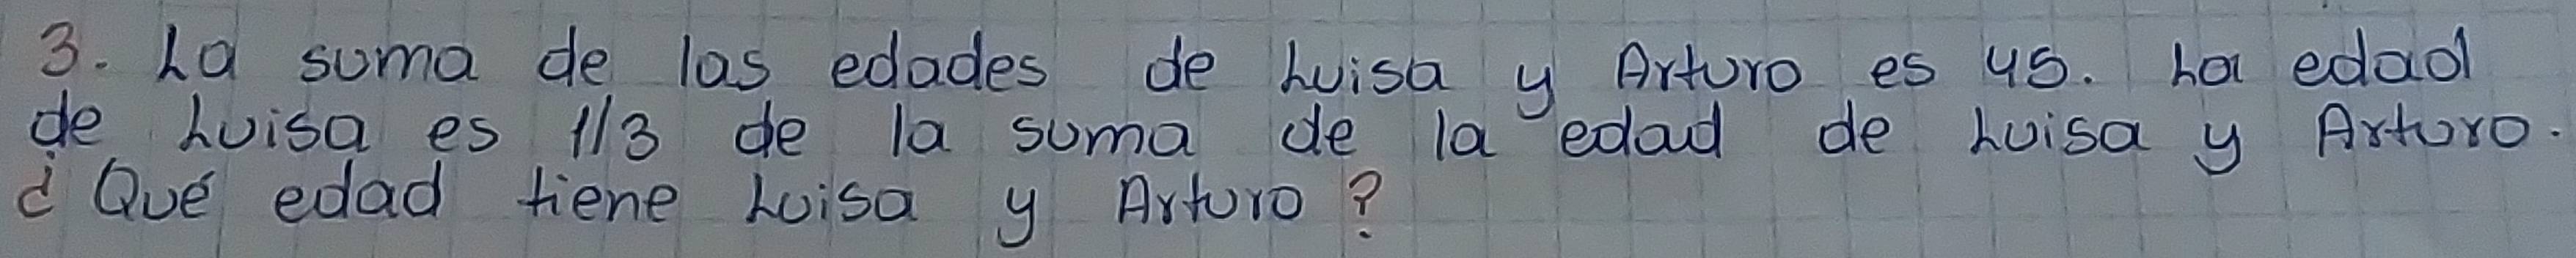 3. La suma de las edades de Luisa y Arturo es 45. La edad
de Luisa es 1/3 de la suma de la edad de Luisa y Arturo.
¿Qué edad tiene Luisa y Arturo?